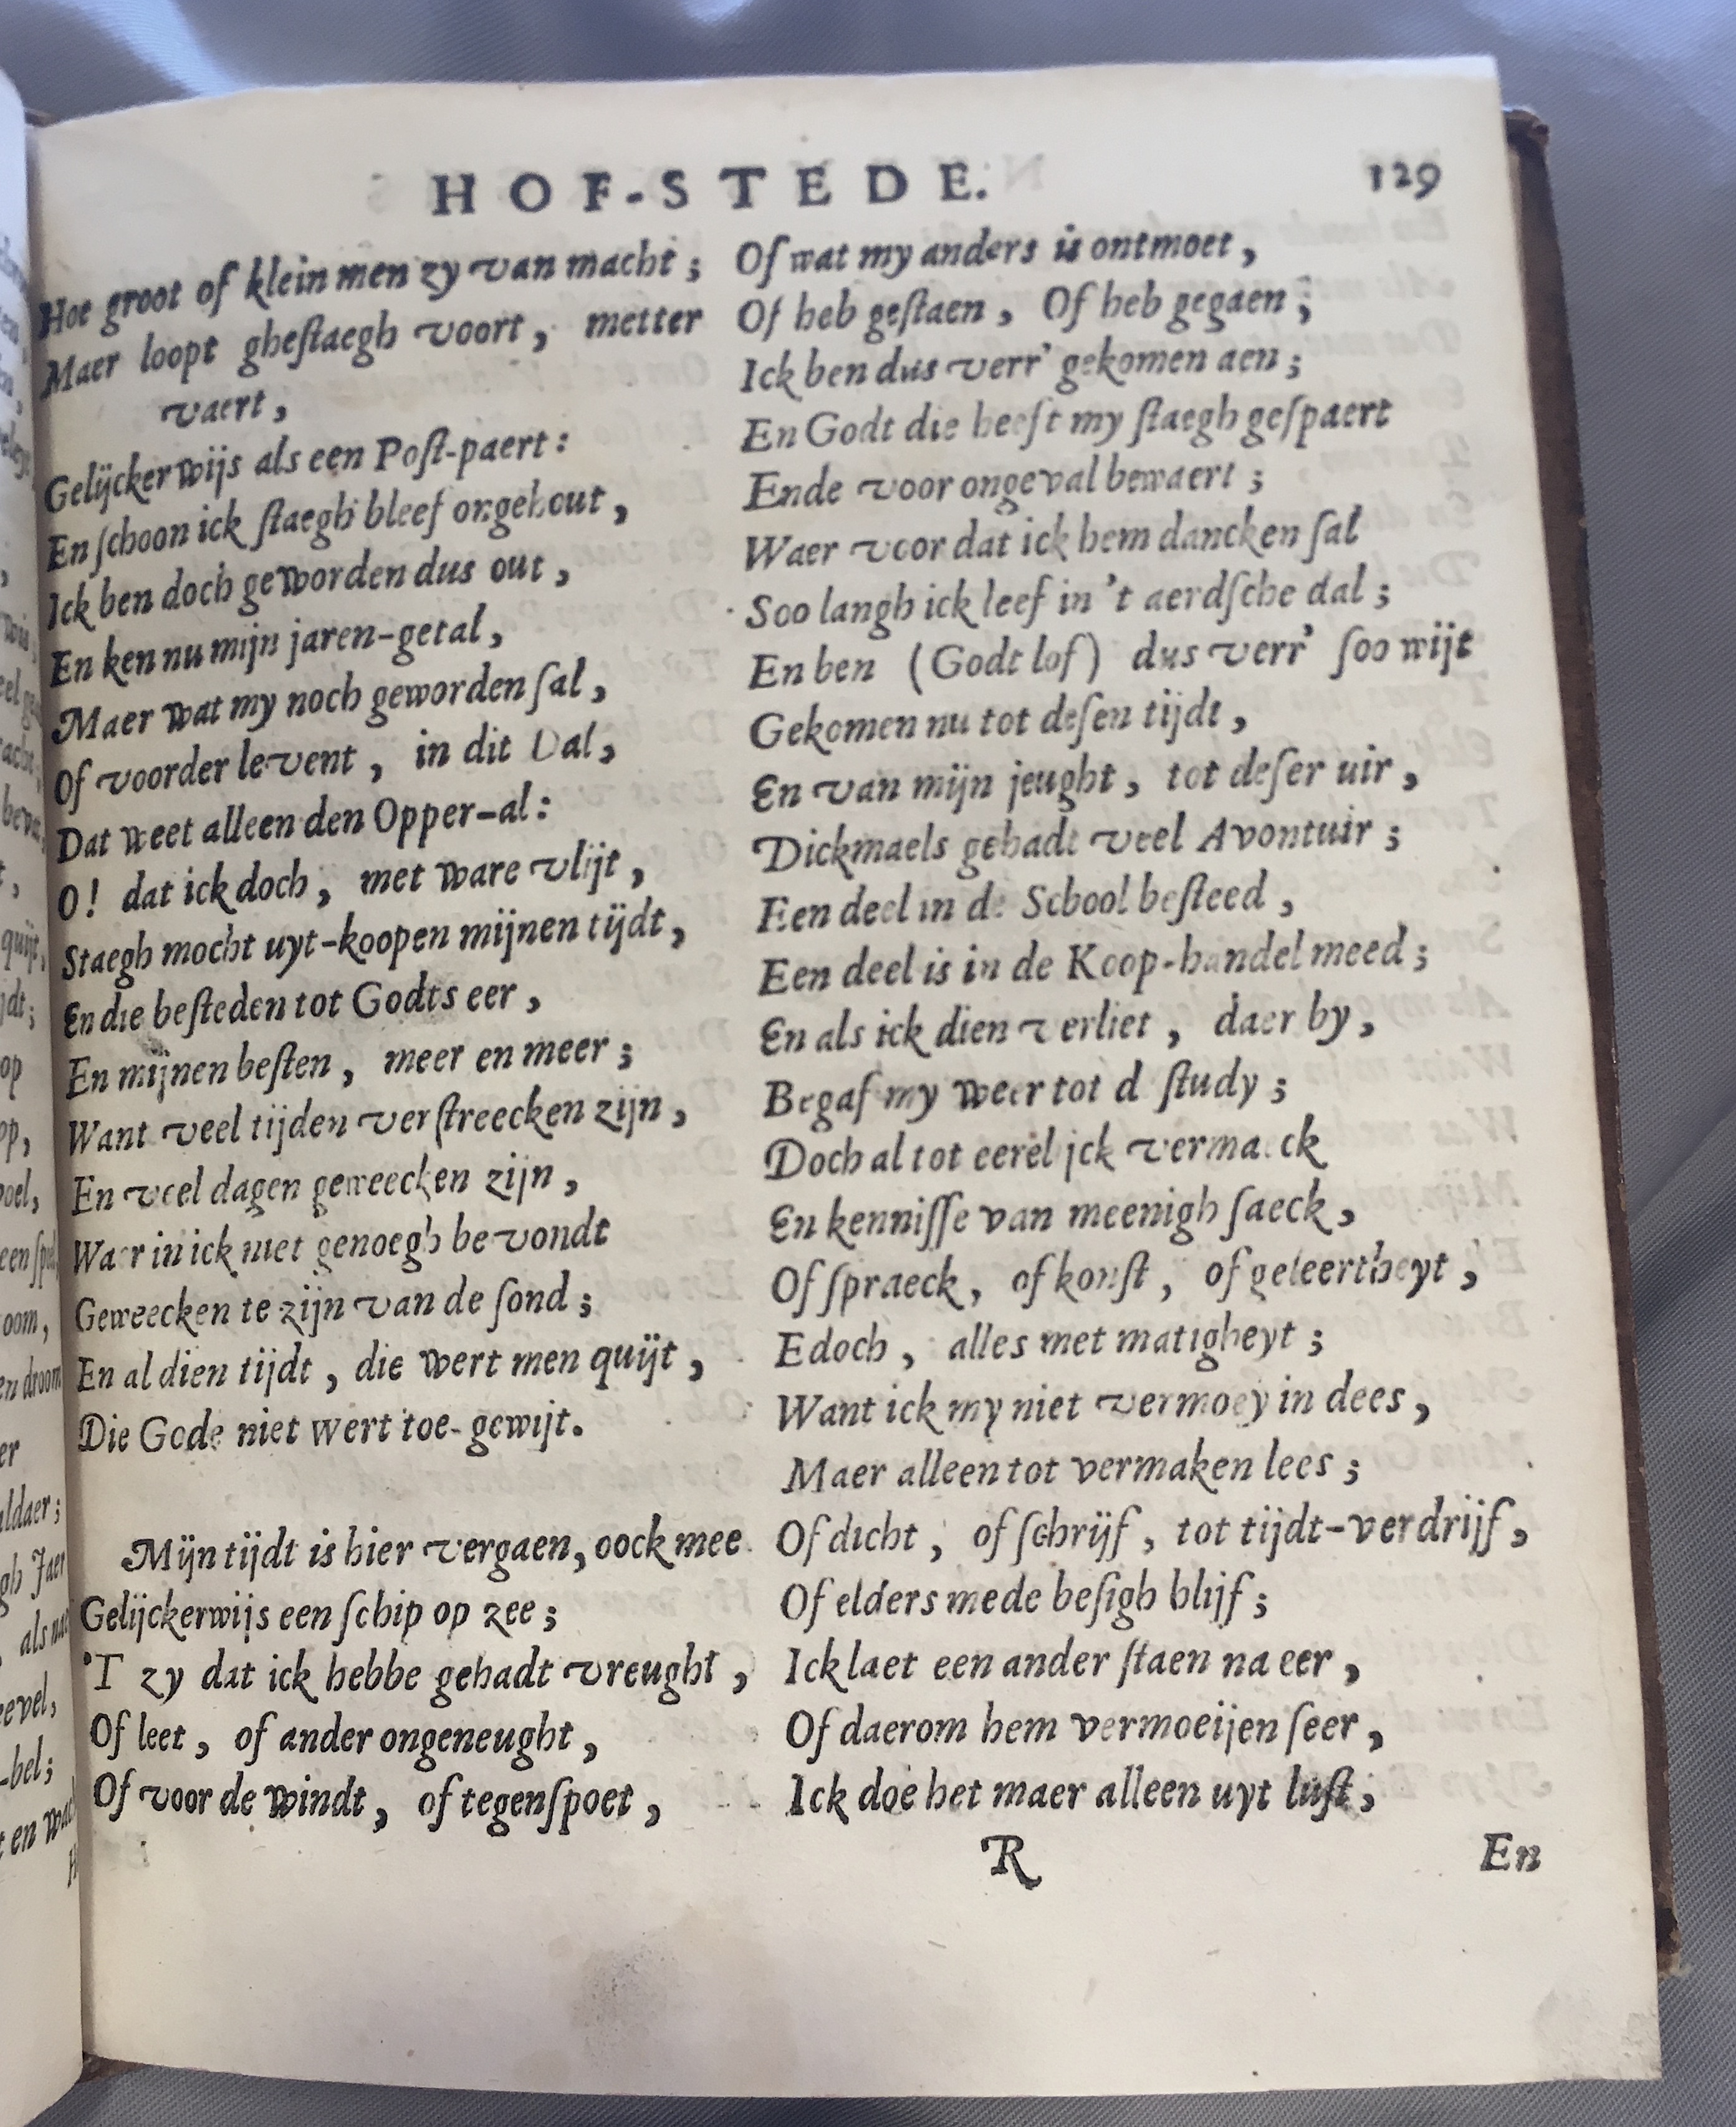 HOF-STEDE. 129
Hoe groot of klein men zy van macht ;
Maer loopt gheſtaegh voort , metter
vaert ,
Gelijckerwijs als een Poſt-paert :
En ſchoon ick ſtaegh bleef ongehout ,
Ick ben doch geworden dus out ,
En ken nu mijn jaren-getal ,
Maer wat my noch geworden ſal ,
Of voorder levent , in dit Dal ,
Dat weet alleen den Opper-al :
O! dat ick doch , met ware vlijt ,
Staegh mocht uyt-koopen mijnen tijdt ,
En die beſteden tot Godts eer ,
En mijnen beſten , meer en meer ;
Want veel tijden verſtreecken zijn ,
En veel dagen geweecken zijn ,
Waer in ick niet genoegh bevondt
Geweecken te zijn van de ſond ;
En al dien tijdt , die wert men quijt ,
Die Gode niet wert toe-gewijt.
Mijn tijdt is hier vergaen, oock mee
Gelijckerwijs een ſchip op zee ;
'T zy dat ick hebbe gehadt vreught ,
Of leet , of ander ongeneught ,
Of voor de windt , of tegenſpoet ,
Of wat my anders is ontmoet ,
Of heb geſtaen , Of heb gegaen ;
Ick ben dus verr' gekomen aen ;
En Godt die heeft my ſtaegh geſpaert
Ende voor ongeval bewaert ;
Waer voor dat ick hem dancken ſal
Soo langh ick leef in 't aerdſche dal ;
En ben (Godt lof) dus verr' ſoo wijt
Gekomen nu tot deſen tijdt ,
En van mijn jeught , tot deſer uir ,
Dickmaels gehadt veel Avontuir ;
Een deel in de School beſteed ,
Een deel is in de Koop-handel meed ;
En als ick dien verliet , daer by ,
Begaf my weer tot d ſtudy ;
Doch al tot eerel jck verma ck
En kenniſſe van meenigh ſaeck ,
Of ſpraeck , of konſt , of geleertheyt ,
Edoch , alles met matigheyt ;
Want ick my niet vermoey in dees ,
Maer alleen tot vermaken lees ;
Of dicht , of ſchrijf , tot tijdt-verdrijf ,
Of elders mede beſigh blijf ;
Ick laet een ander ſtaen na eer ,
Of daerom hem vermoeijen ſeer ,
Ick doe het maer alleen uyt luſt ,
R En